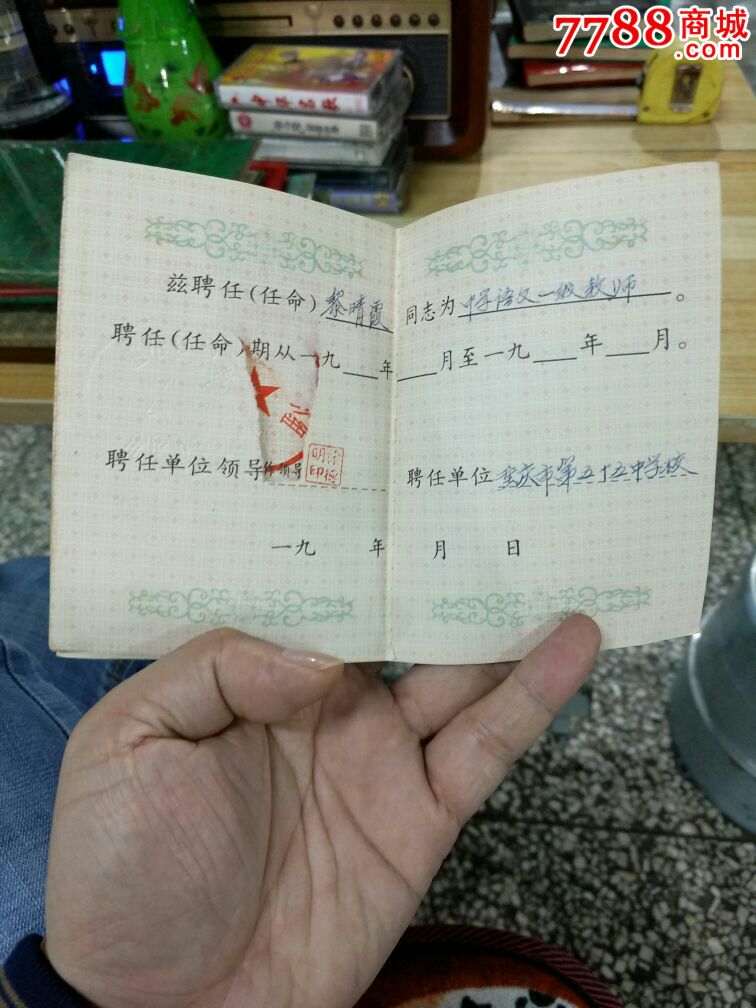 7788商城
.com
兹聘任(任命)黎晴霞 同志为中学语文一级教师。
聘任(任命)期从一九___年___月至一九___年___月。
聘任单位领导 聘任单位重庆市第五十五中学校
一九 年 月 日